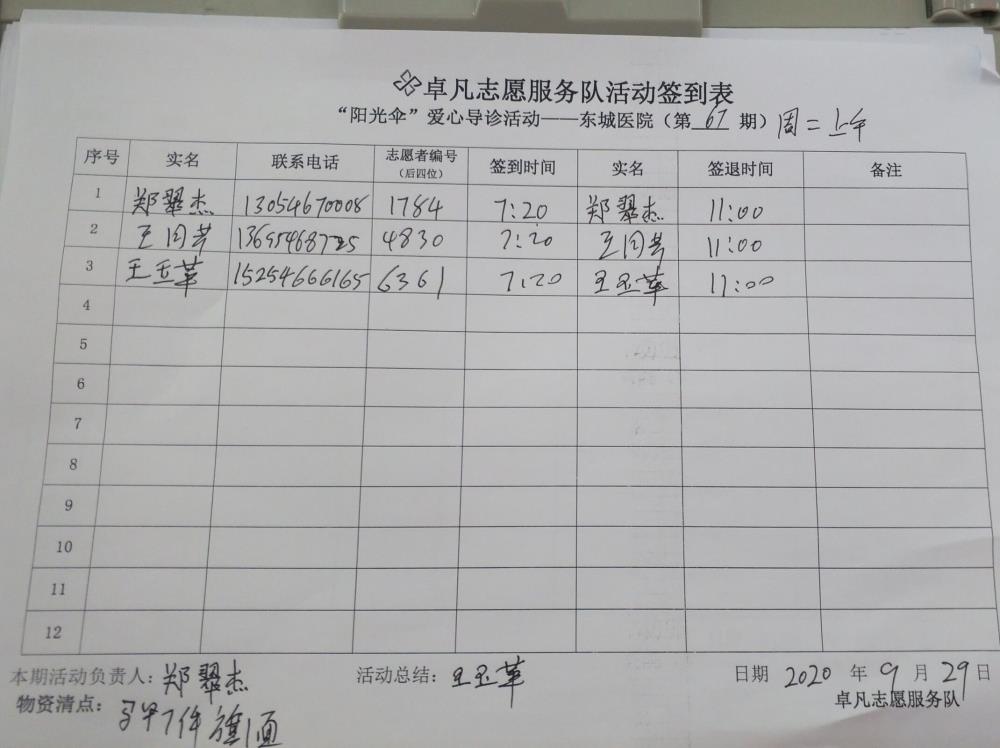 卓凡志愿服务队活动签到表
“阳光伞”爱心导诊活动——东城医院（第 67 期）周二上午
序号 实名 联系电话 志愿者编号（后四位） 签到时间 实名 签退时间 备注
1 郑翠杰 13054670008 1784 7:20 郑翠杰 11:00
2 王同芳 4830 7:20 王同芳 11:00
3 王玉苹 15254666165 6361 7:20 王玉苹 11:00
4
5
6
7
8
9
10
11
12
本期活动负责人：郑翠杰 活动总结：王玉苹 日期 2020 年 9 月 29 日
物资清点：马甲7件 旗1面 卓凡志愿服务队